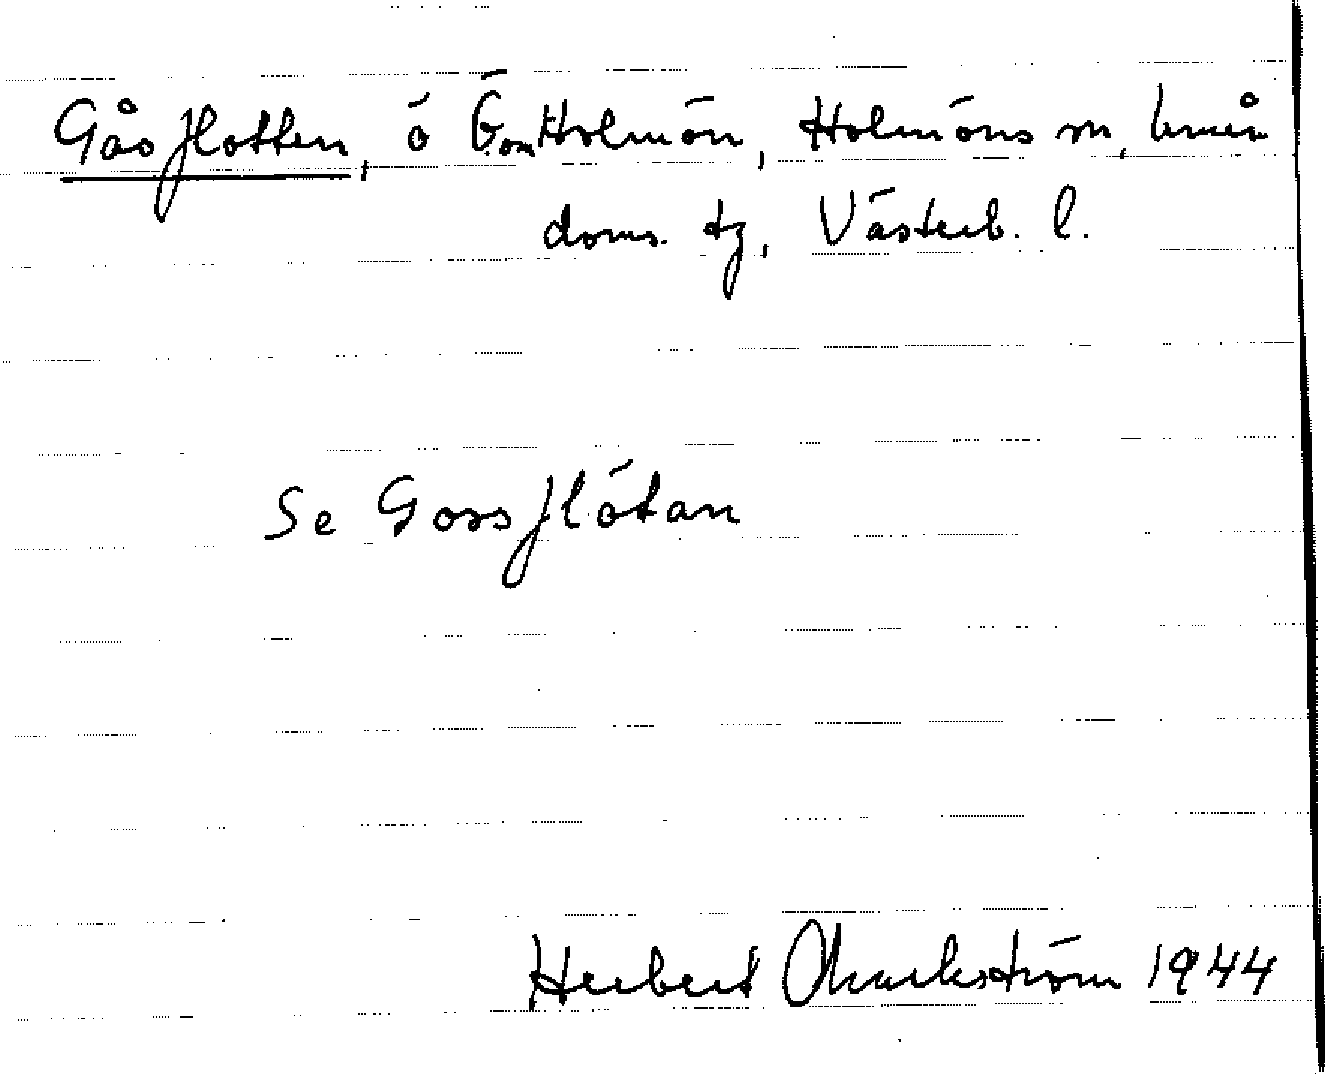 Gåsflotten, ö Ö om Holmön, Holmöns sn, Umeå
doms. tg, Västerb. l.
Se Gossflötan
Herbert Markström 1944